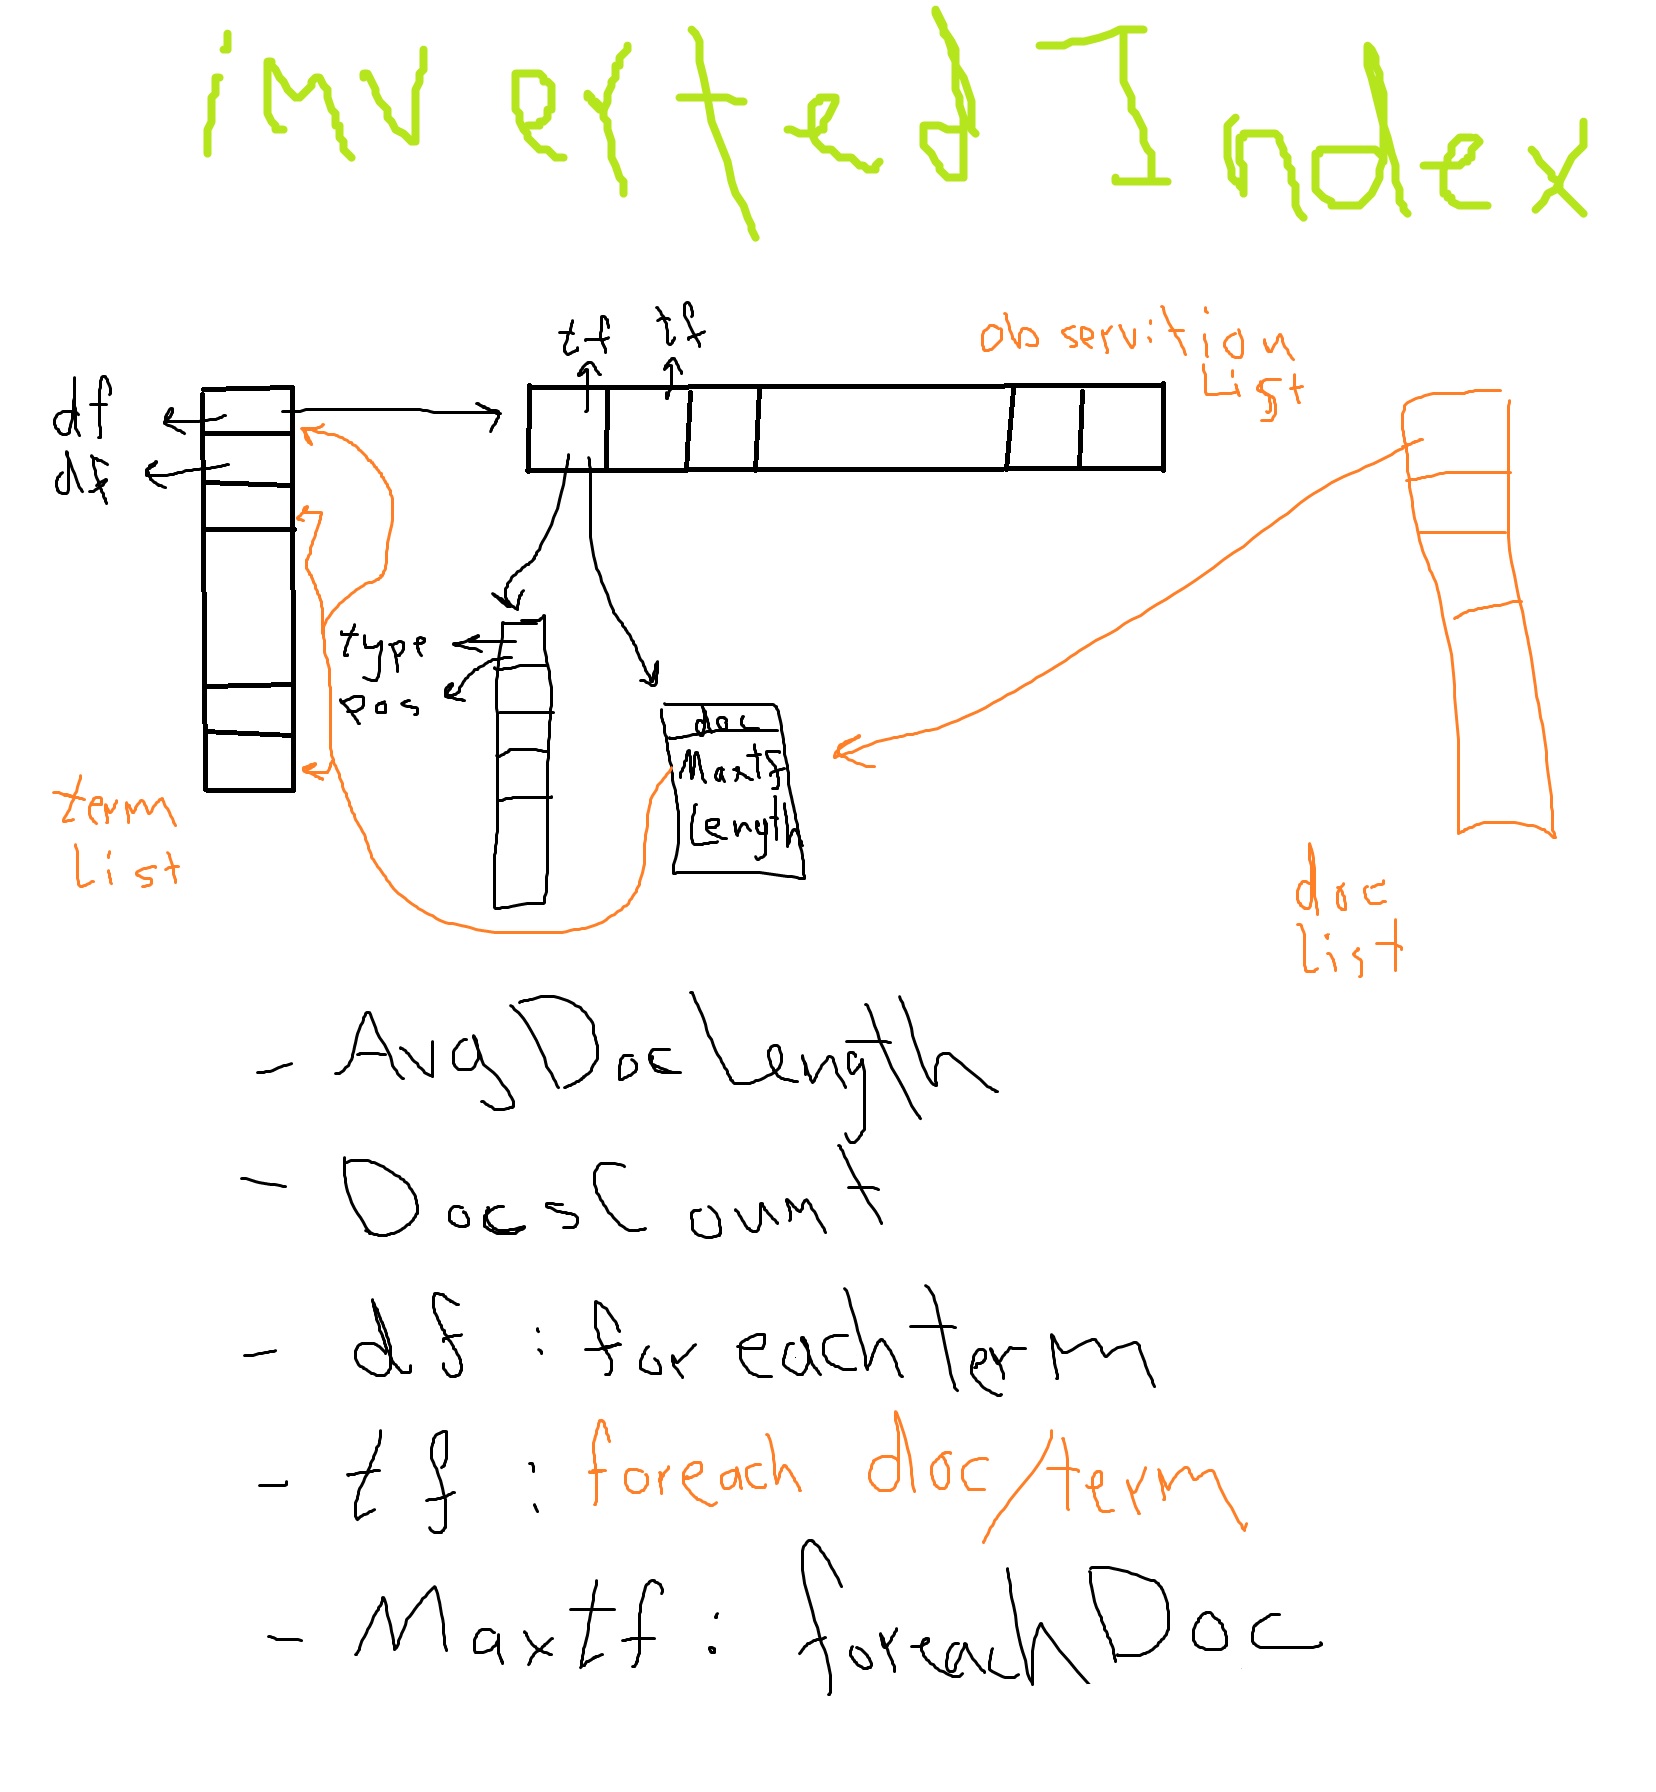 inverted Index
tf tf
observition
List
df
df
type
pos
doc
Maxtf
Length
term
List
doc
list
- AvgDocLength
- DocsCount
- df : for each term
- tf : foreach doc/term
- Maxtf : foreach Doc